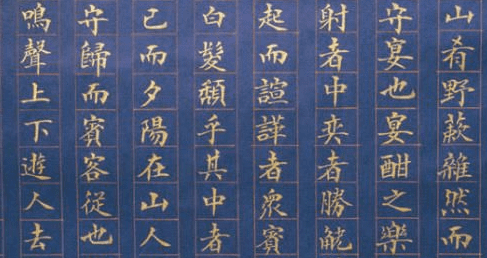 山肴野蔌雜然而
守宴也宴酣之樂
射者中奕者勝觥
起而諠譁者衆賓
白髮頹乎其中者
已而夕陽在山人
守歸而賓客從也
鳴聲上下遊人去